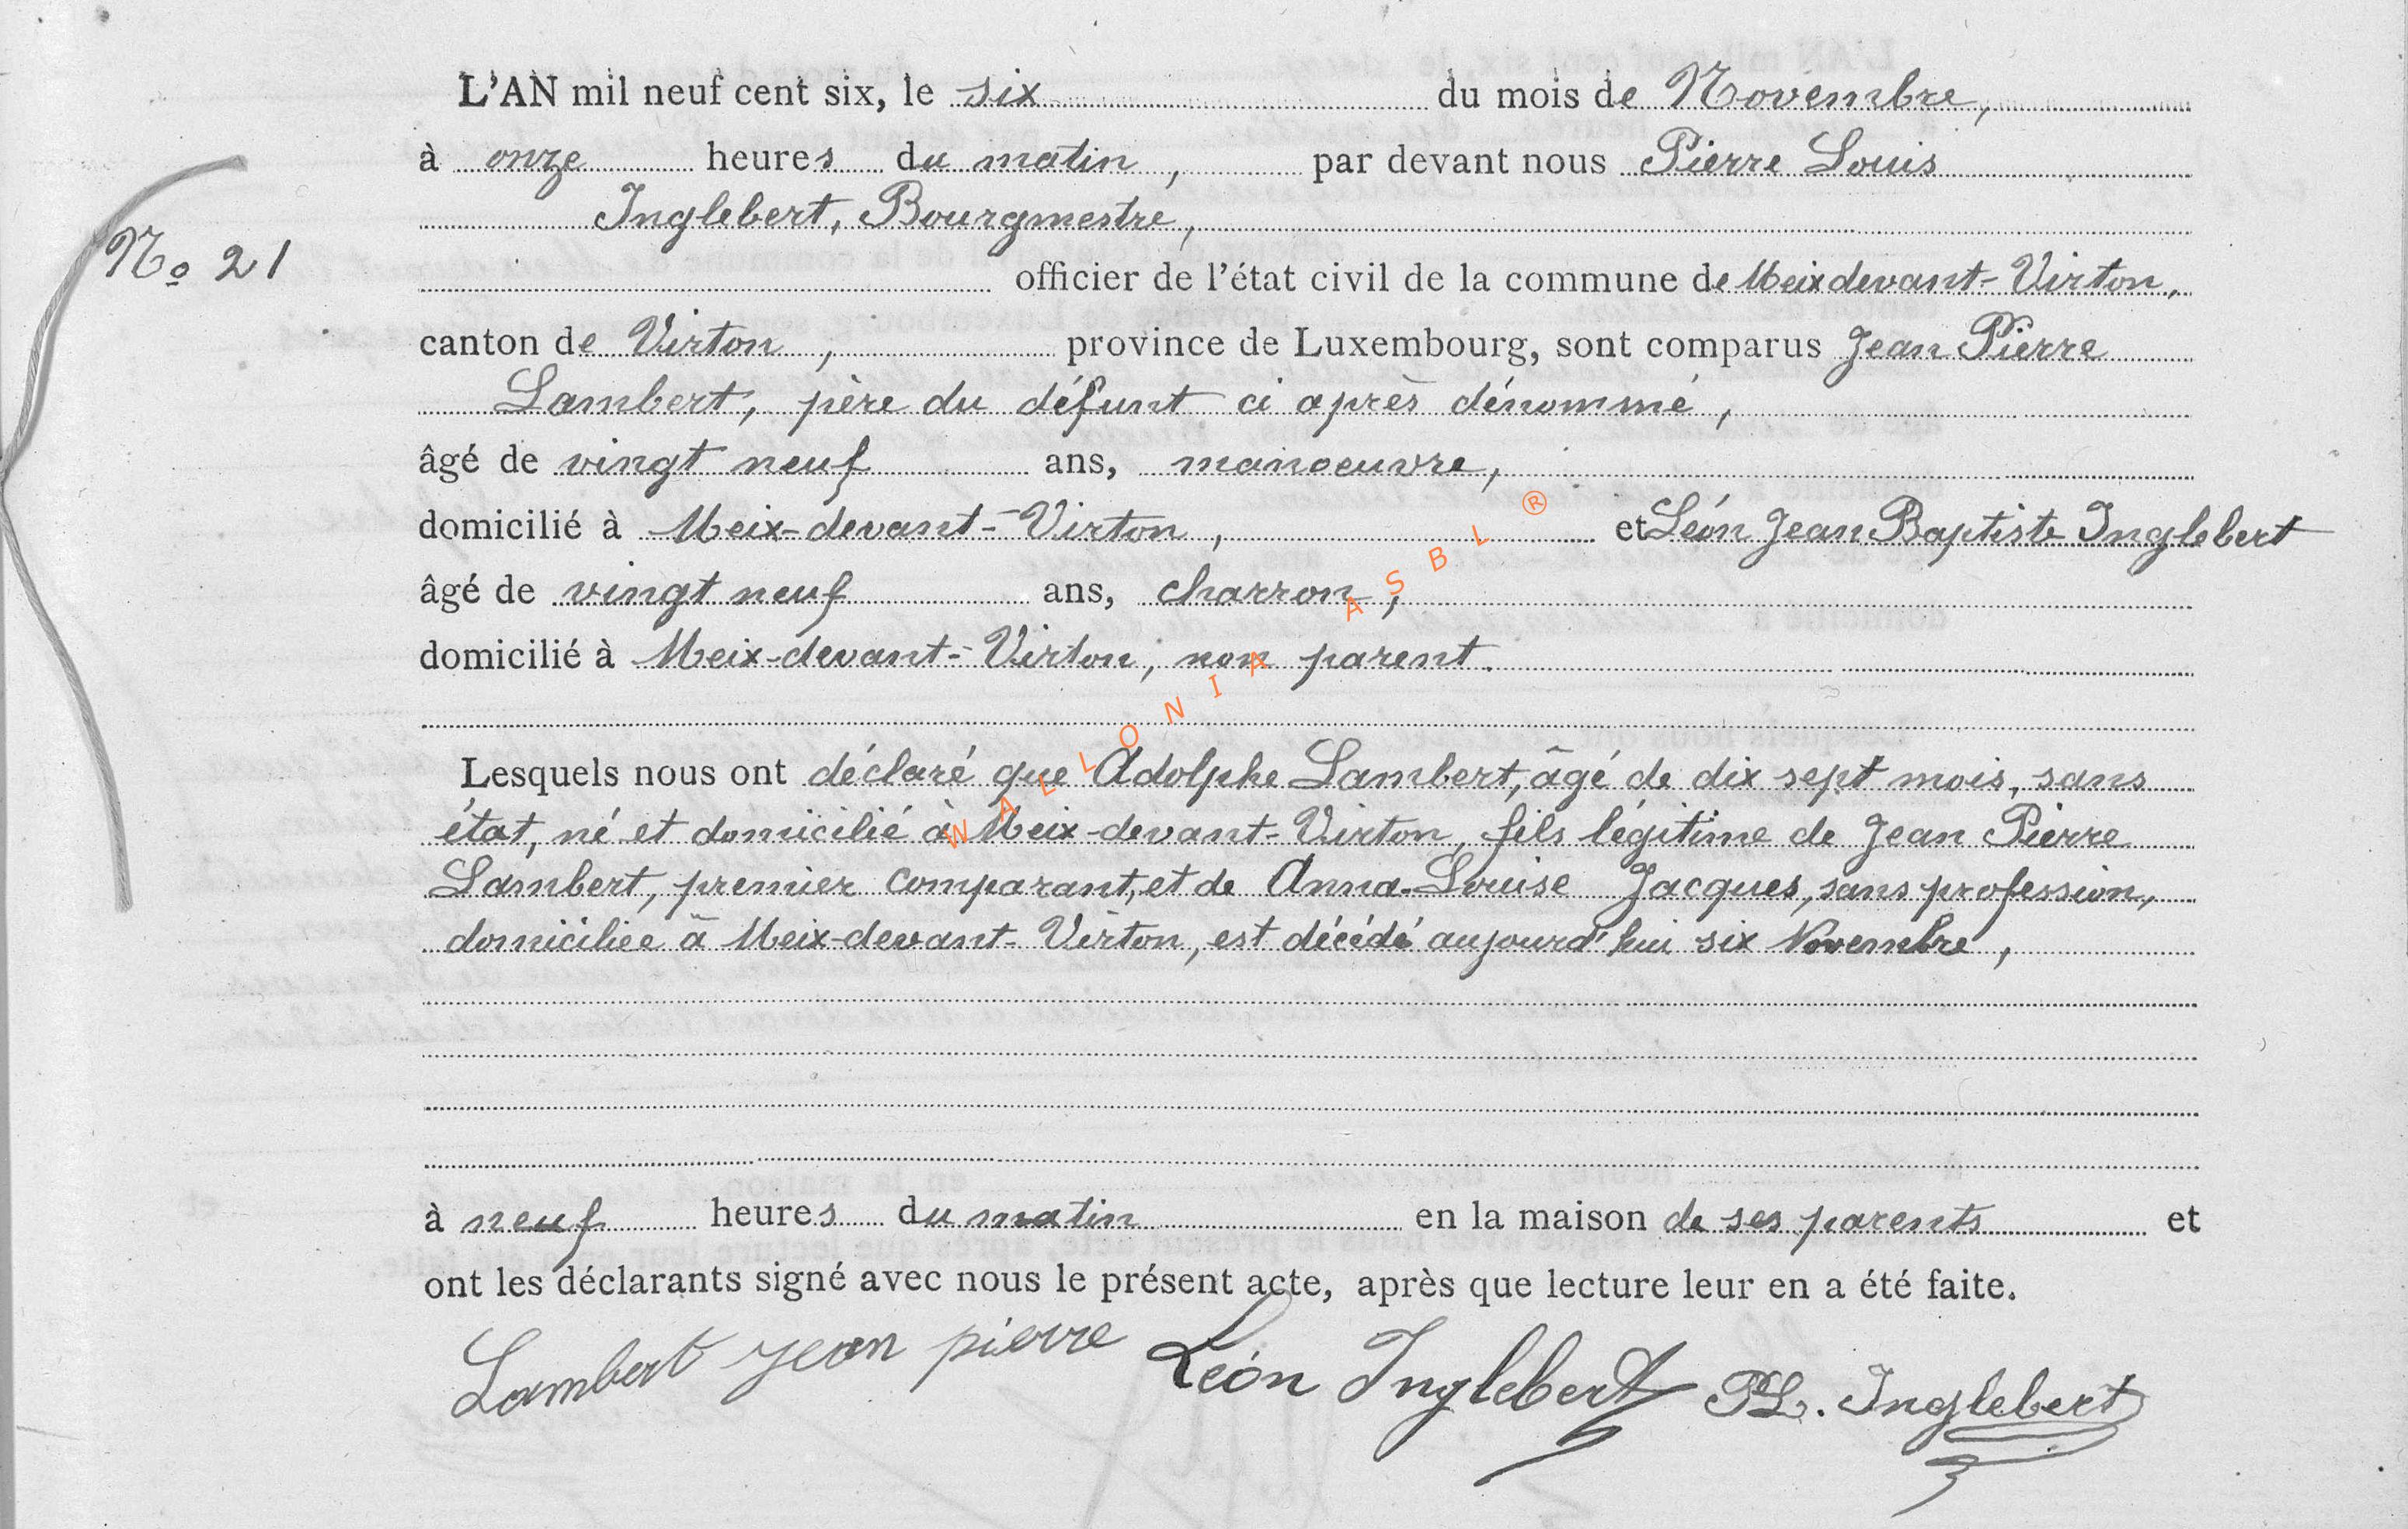 L'AN mil neuf cent six, le six du mois de Novembre,
à onze heures du matin, par devant nous Pierre Louis
Inglebert, Bourgmestre,
No 21
officier de l'état civil de la commune de Meix devant-Virton,
canton de Virton, province de Luxembourg, sont comparus Jean Pierre
Lambert, père du défunt ci après dénommé,
âgé de vingt neuf ans, manoeuvre,
domicilié à Meix-devant-Virton, et Léon Jean Baptiste Inglebert
âgé de vingt neuf ans, charron,
domicilié à Meix-devant-Virton, non parent.
WALLONIA ASBL ®
Lesquels nous ont déclaré que Adolphe Lambert, âgé de dix sept mois, sans
état, né et domicilié à Meix-devant-Virton, fils légitime de Jean Pierre
Lambert, premier comparant, et de Anna-Louise Jacques, sans profession,
domiciliée à Meix-devant-Virton, est décédé aujourd'hui six Novembre,
à neuf heures du matin en la maison de ses parents et
ont les déclarants signé avec nous le présent acte, après que lecture leur en a été faite.
Lambert jean pierre Léon Inglebert PL. Inglebert